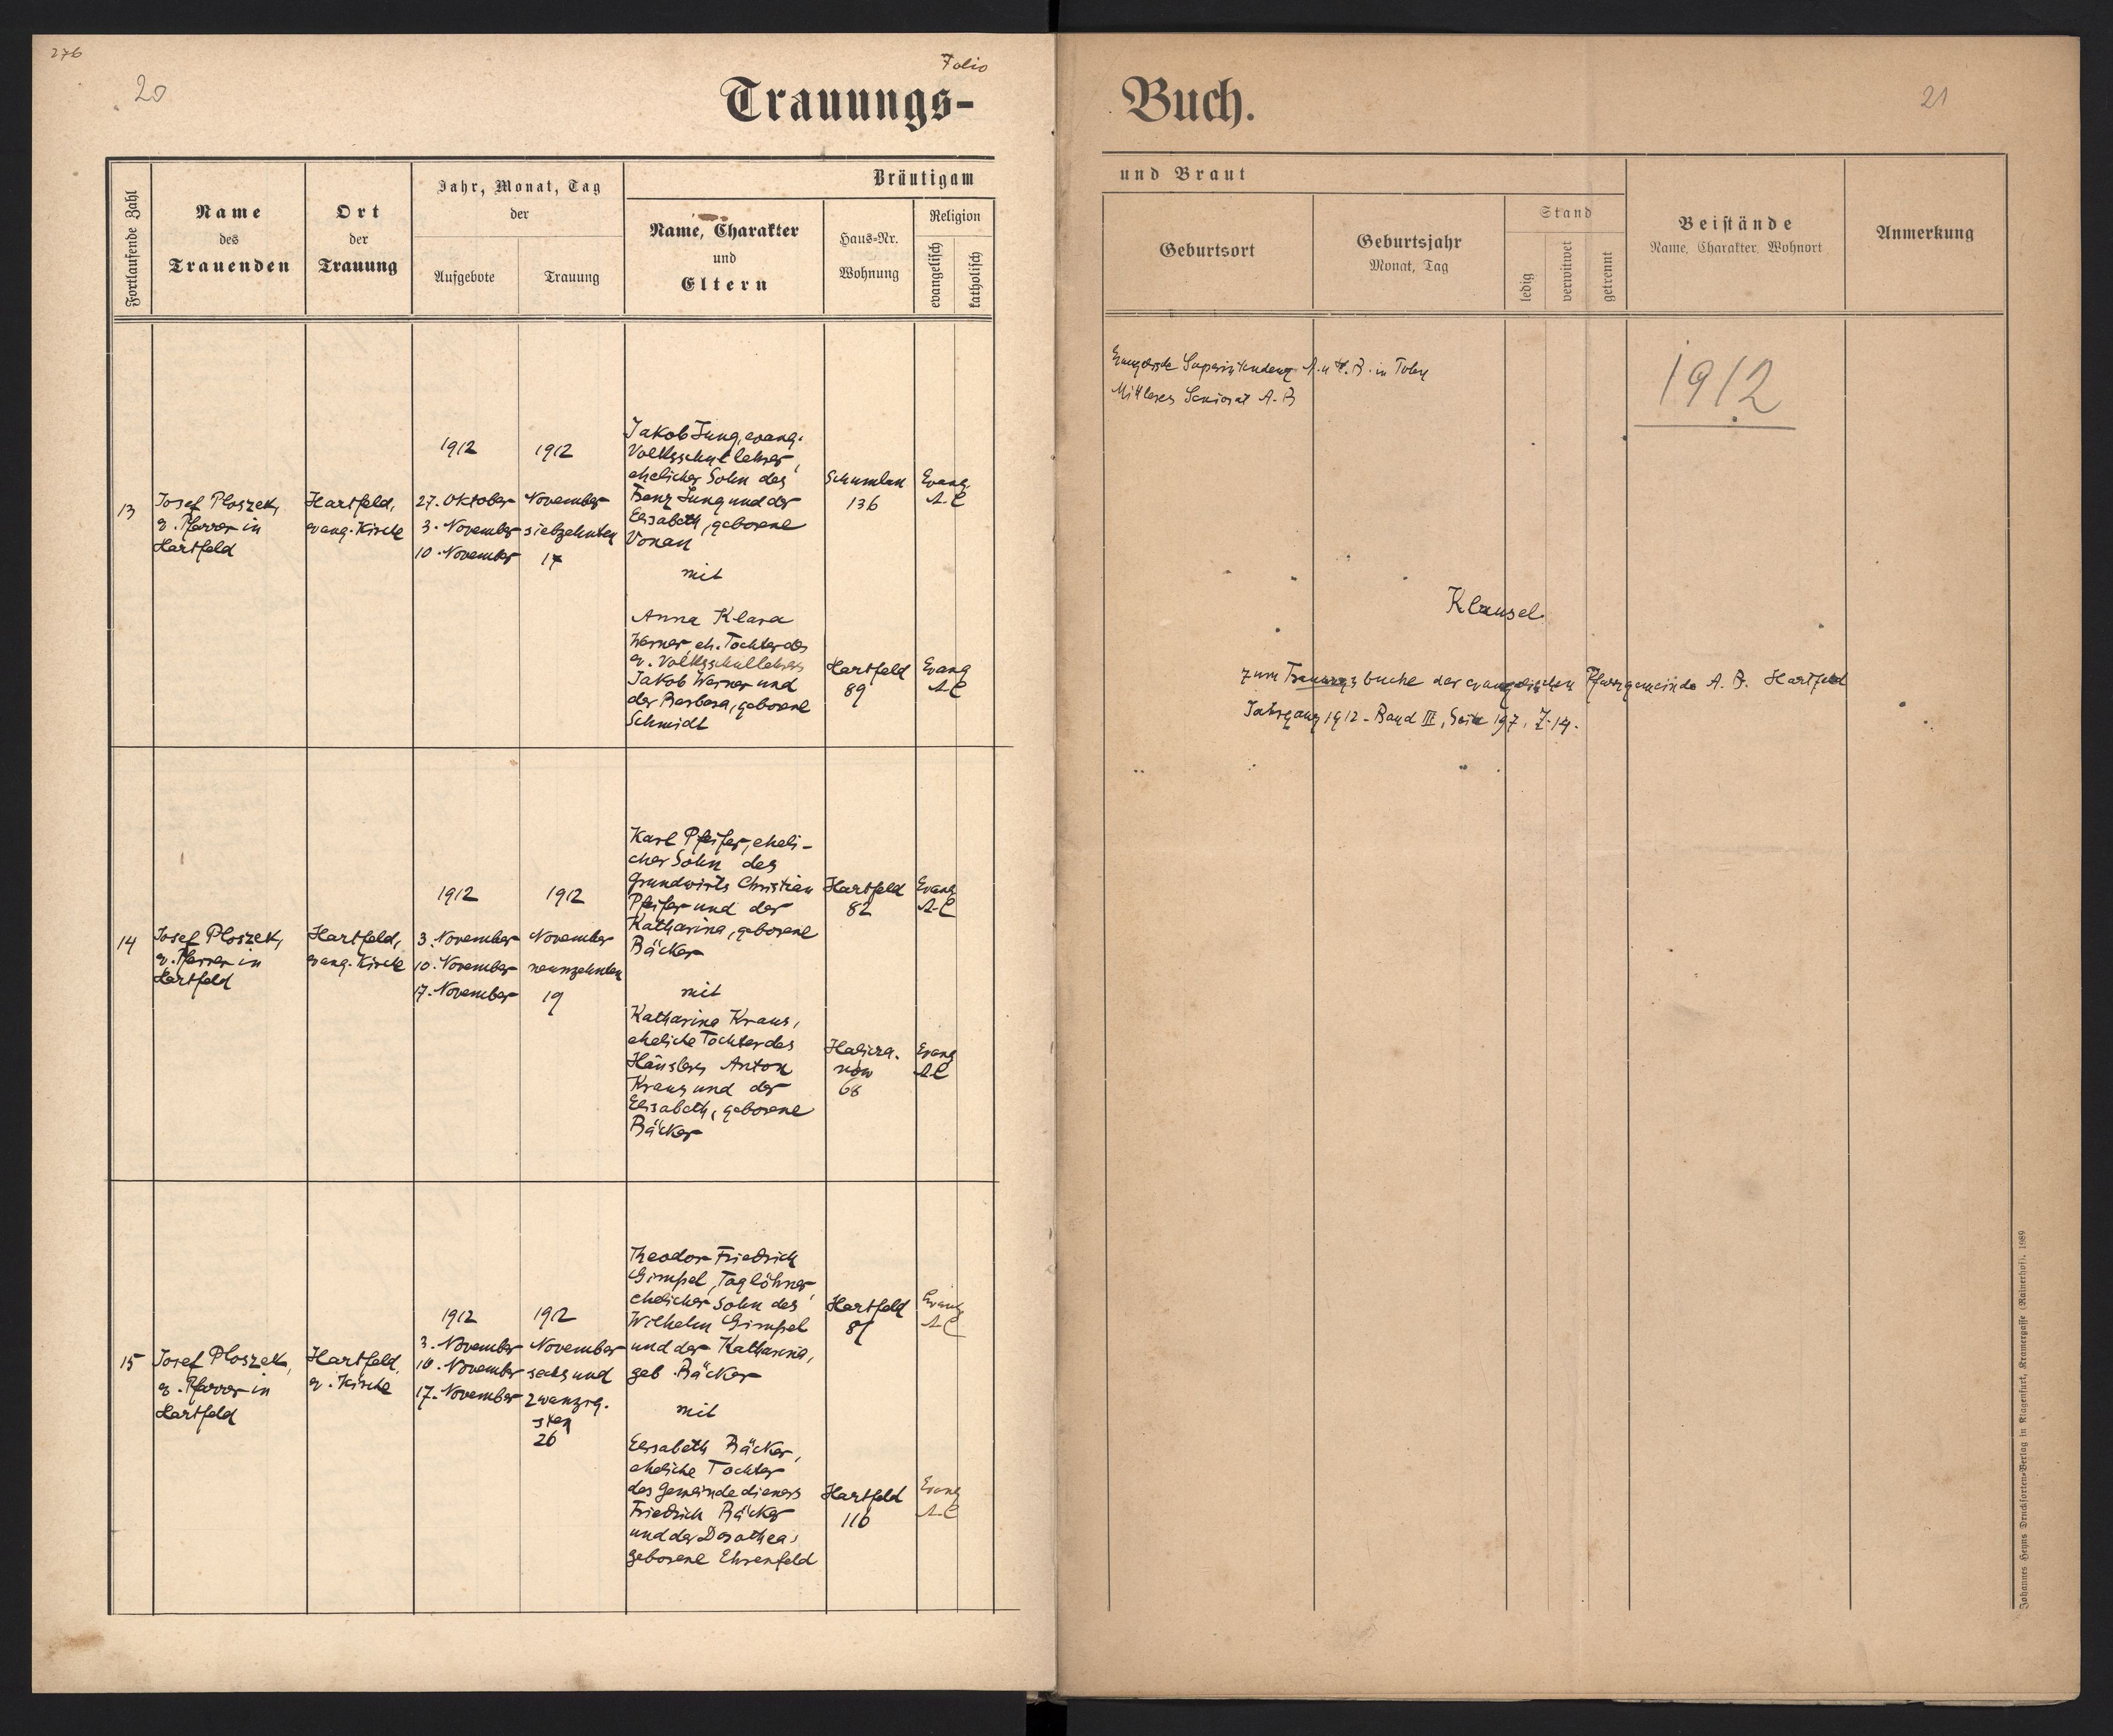 276
20
Folio
Trauungs-
Fortlaufende Zahl
Name
des
Trauenden
Ort
der
Trauung
Jahr, Monat, Tag
der
Aufgebote
Trauung
Bräutigam
Name, Charakter
und
Eltern
Haus-Nr.
Wohnung
Religion
evangelisch
katholisch
13
Josef Ploszek,
ev. Pfarrer in
Hartfeld
Hartfeld,
evang. Kirche
1912
27. Oktober
3. November
10. November
1912
November
siebzehnten
17
Jakob Jung, evang.
Volksschullehrer,
ehelicher Sohn des
Franz Jung und der
Elisabeth, geborene
Vonau
Schumlau
136
Evang
A.C
mit
Anna Klara
Werner, eh. Tochter des
ev. Volksschullehrers
Jakob Werner und
der Barbara, geborene
Schmidt
Hartfeld
89
Evang
A.C
14
Josef Ploszek,
ev. Pfarrer in
Hartfeld
Hartfeld,
evang. Kirche
1912
3. November
10. November
17. November
1912
November
neunzehnten
19
Karl Pfeifer, eheli-
cher Sohn des
Grundwirts Christian
Pfeifer und der
Katharina, geborene
Bäcker
Hartfeld
82
Evang
A.C
mit
Katharina Kraus,
eheliche Tochter des
Häuslers Anton
Kraus und der
Elisabeth, geborene
Bäcker
now
68
Evang
A.C
15
Josef Ploszek,
ev. Pfarrer in
Hartfeld
Hartfeld,
ev. Kirche
1912
3. November
10. November
17. November
1912
November
sechsund
zwanzig-
sten
26
Theodor Friedrich
Gimpel, Taglöhner,
ehelicher Sohn des
Wilhelm Gimpel
und der Katharina,
geb. Bäcker
Hartfeld
Evang
A.C
mit
Elisabeth Bäcker,
eheliche Tochter
des Gemeindedieners
Friedrich Bäcker
und der Dorothea,
geborene Ehrenfeld
Hartfeld
116
Evang
A.C
Buch.
21
und Braut
Geburtsort
Geburtsjahr
Monat, Tag
Stand
ledig
verwitwet
getrennt
Beistände
Name, Charakter, Wohnort
Anmerkung
Evangelische Superintendenz A. u. H. B. in
Mittleres Seniorat A. B
1912
Klausel
zum Trauungsbuche der evangelischen Pfarrgemeinde A. B. Hartfeld
Jahrgang 1912 - Band III, Seite 197, Z. 14.
Johannes Heyns Drucksorten-Verlag in Klagenfurt, Kramergasse (Rainerhof). 1989